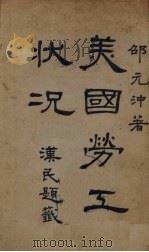 邵元沖著
美國勞工
狀況
漢民題籤